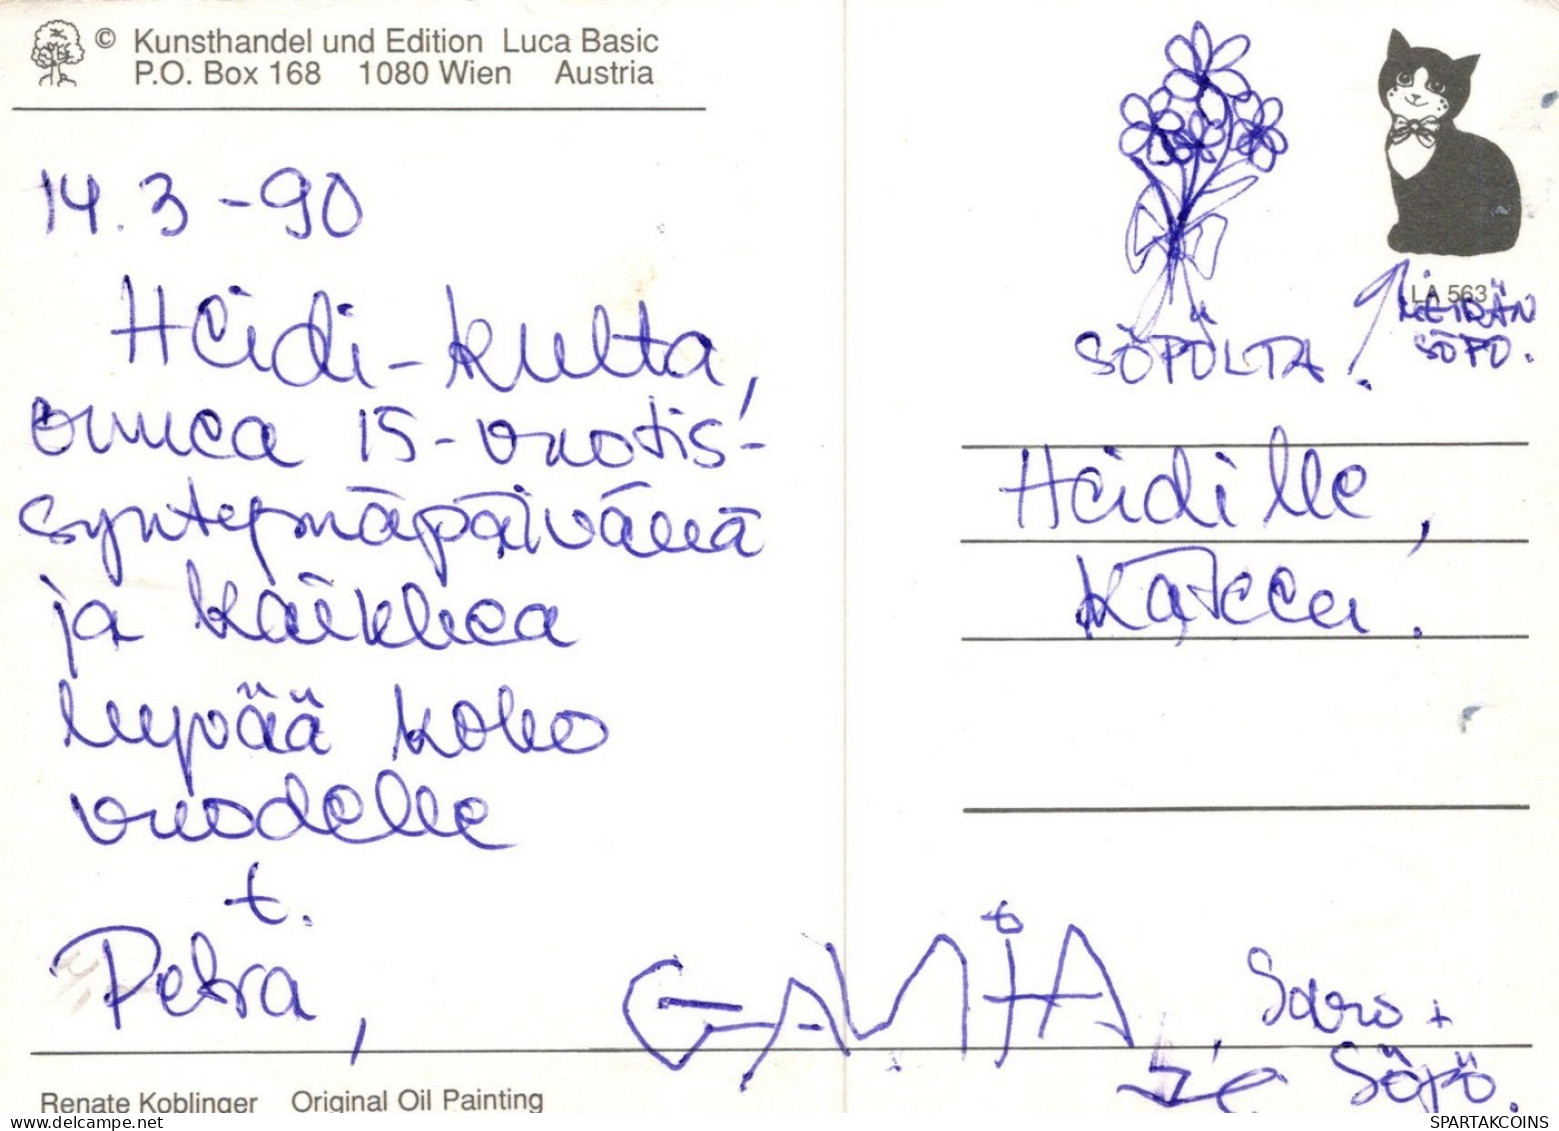 © Kunsthandel und Edition Luca Basic
P.O. Box 168 1080 Wien Austria
14.3 -90
Heidi-kulta,
onnea 15-vuotis-
syntymäpäivänä
ja kaikkea
hyvää koko
vuodelle
t.
Petra,
SÖPÖLTÄ!
LA 563
MEIDÄN
SÖPÖ.
Heidille,
Käteen.
Saro +
Söpö.
Renate Koblinger Original Oil Painting
SPARTAKCOINS